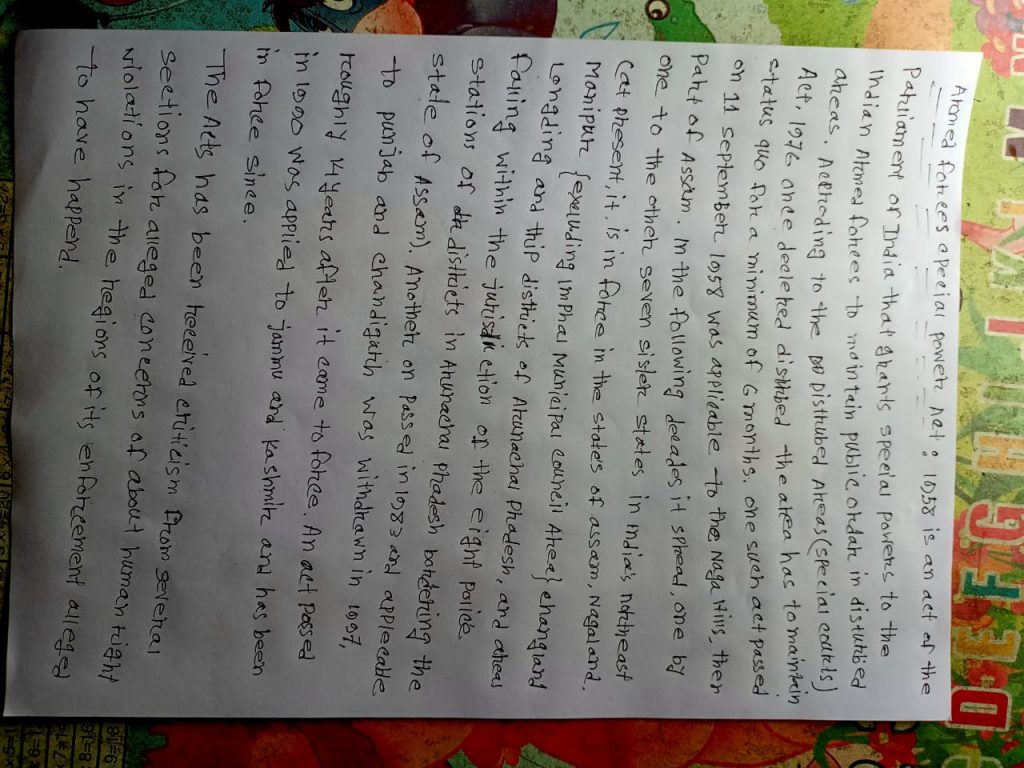 Aromed forces apecial power Act: 1958 is an act of the
Patliament of India that grants special powers to the
Indian Aromed forces to maintain public ordar in distutbed
areas. Actrding to the Distrubed Areas (special courts)
Act, 1976 once decleted distrbed the area has to maintain
status quo for a minimum of 6 months. one such act passed
on 11 september 1958 was applicable to the Naga Hills, then
Part of Assam. In the following decades it spread, one by
one to the other seven sister states in India's northeast
Cat present, it. is in force in the states of assam, Nagaland.
Manipur {exculding Imphal Municipal council Area} changland
Longding and thip districts of Arunachal Pradesh, and areas
falling within the juris ction of the eight Police
stations of districts in Arunachal Phadesh bordering the
state of Assam). Another on passed in 1983 and applecable
to punjab and chandigath was withdrawn in 1997,
roughly 14 years after it come to force. An act passed
in 1990 was applied to jammu and kashmir and has been
in force since.
The Acts has been received criticism from several
sections for alleged concerns of about human right
violations in the regions of its enforcement alleged
to have happend.
D E F G H